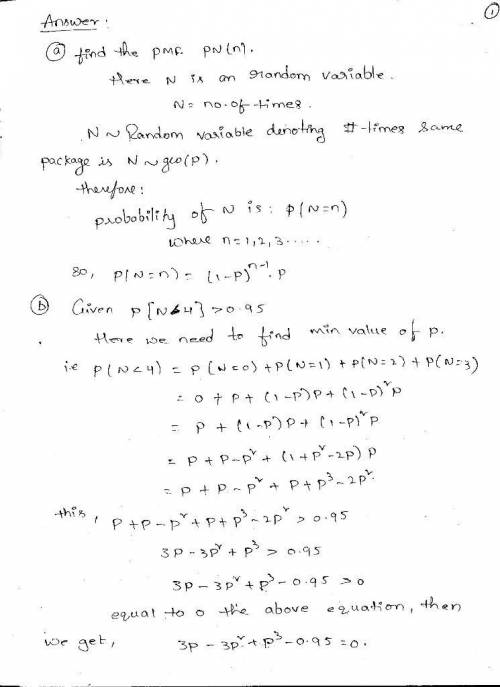 ①
Answer:
ⓐ find the PMF PN(n).
Here N is an random variable.
N = no. of times.
N ~ Random variable denoting #-times same
package is N ~ geo(p).
therefore:
probability of N is: p(N=n)
where n = 1, 2, 3 .....
so, P(N=n) = (1-p)ⁿ⁻¹. p
ⓑ Given p[N<4] > 0.95
Here we need to find min value of p.
i.e P(N<4) = P(N=0) + P(N=1) + P(N=2) + P(N=3)
= 0 + p + (1-p)p + (1-p)²p
= p + (1-p)p + (1-p)²p
= p + p - p² + (1+p²-2p) p
= p + p - p² + p + p³ - 2p²
this, p + p - p² + p + p³ - 2p² > 0.95
3p - 3p² + p³ > 0.95
3p - 3p² + p³ - 0.95 > 0
equal to 0 the above equation, then
we get, 3p - 3p² + p³ - 0.95 = 0.